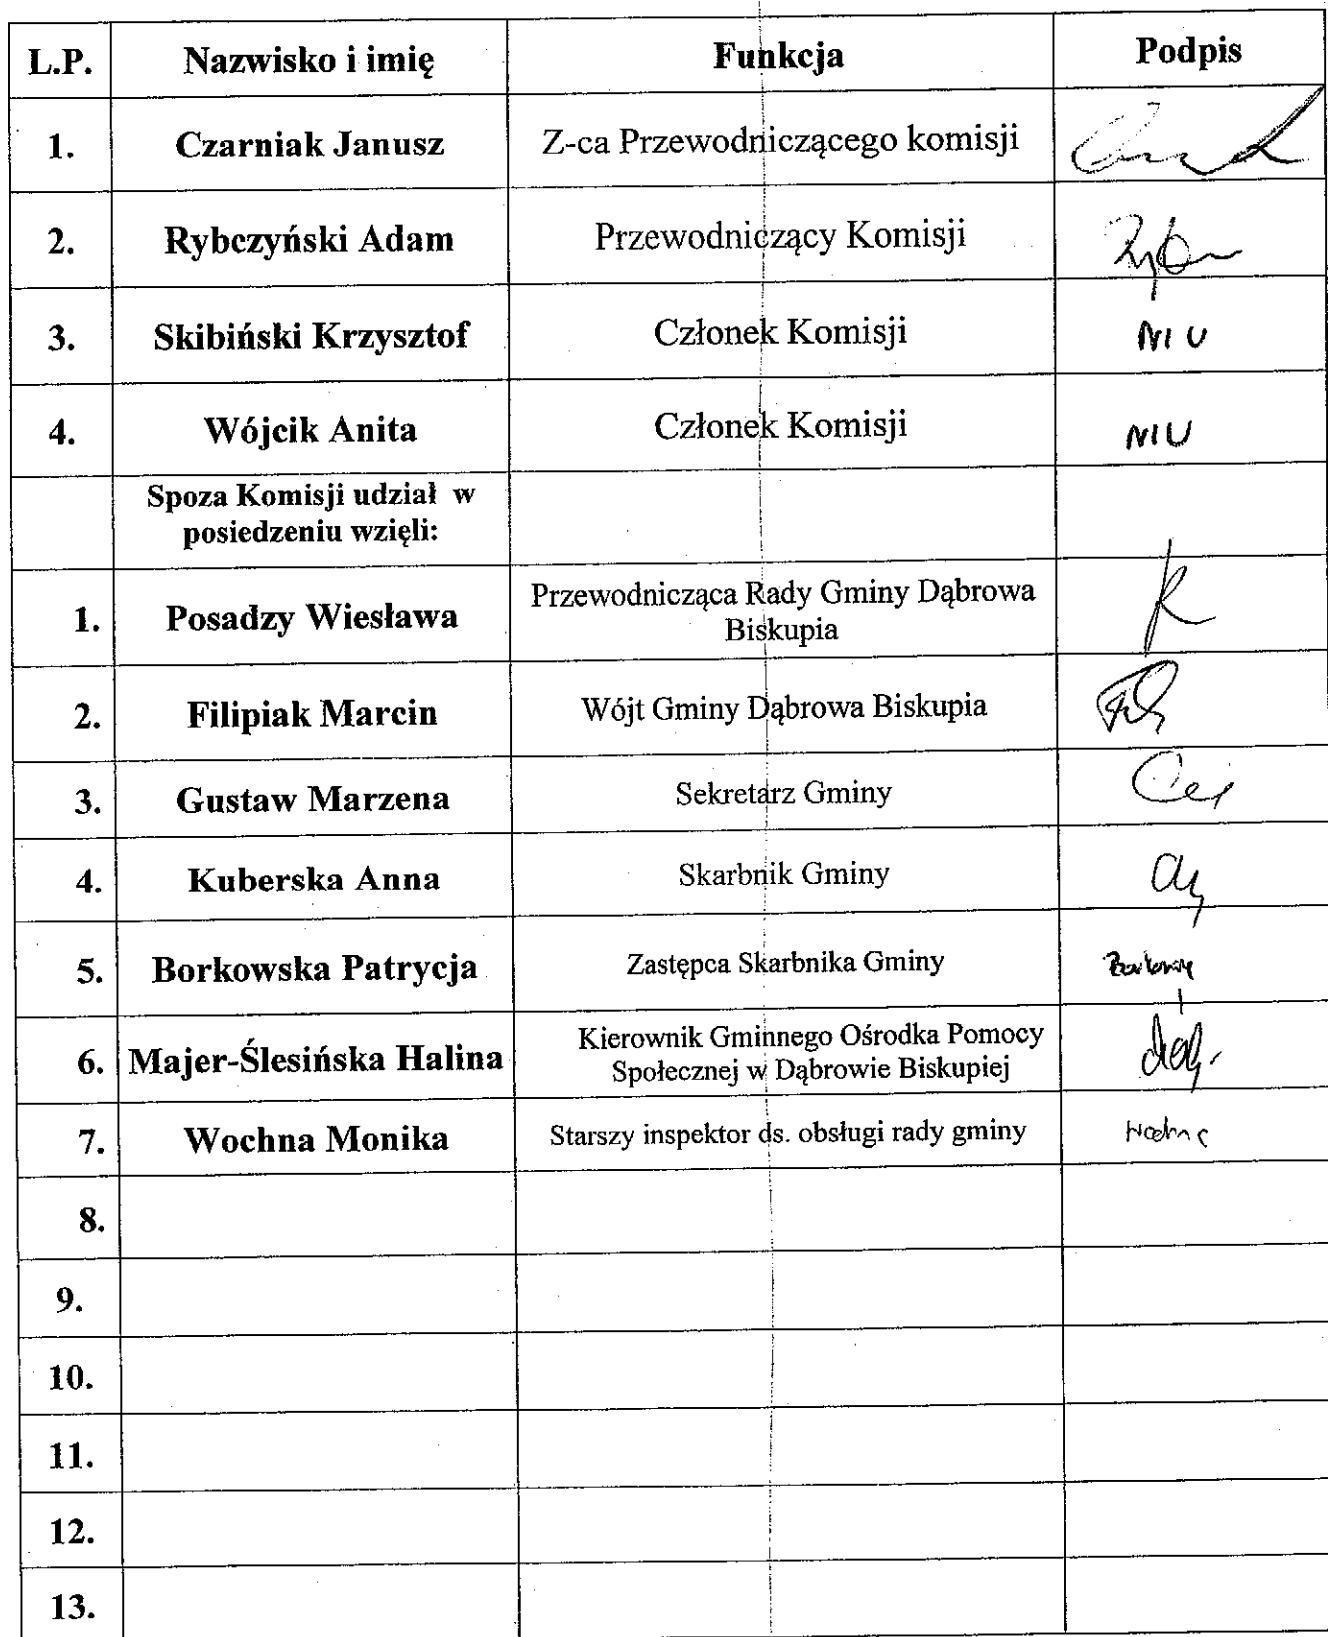 L.P. Nazwisko i imię Funkcja Podpis
1. Czarniak Janusz Z-ca Przewodniczącego komisji
2. Rybczyński Adam Przewodniczący Komisji
3. Skibiński Krzysztof Członek Komisji
4. Wójcik Anita Członek Komisji
Spoza Komisji udział w
posiedzeniu wzięli:
1. Posadzy Wiesława Przewodnicząca Rady Gminy Dąbrowa
Biskupia
2. Filipiak Marcin Wójt Gminy Dąbrowa Biskupia
3. Gustaw Marzena Sekretarz Gminy
4. Kuberska Anna Skarbnik Gminy
5. Borkowska Patrycja Zastępca Skarbnika Gminy
6. Majer-Ślesińska Halina Kierownik Gminnego Ośrodka Pomocy
Społecznej w Dąbrowie Biskupiej
7. Wochna Monika Starszy inspektor ds. obsługi rady gminy
8.
9.
10.
11.
12.
13.